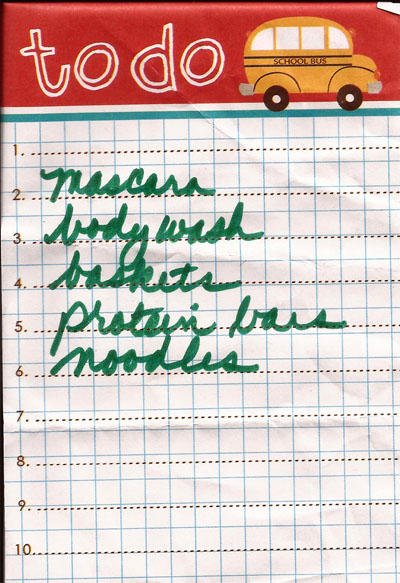 to do
SCHOOL BUS
1.
2. mascara
3. body wash
4. baskets
5. protein bars
6. noodles
7.
8.
9.
10.